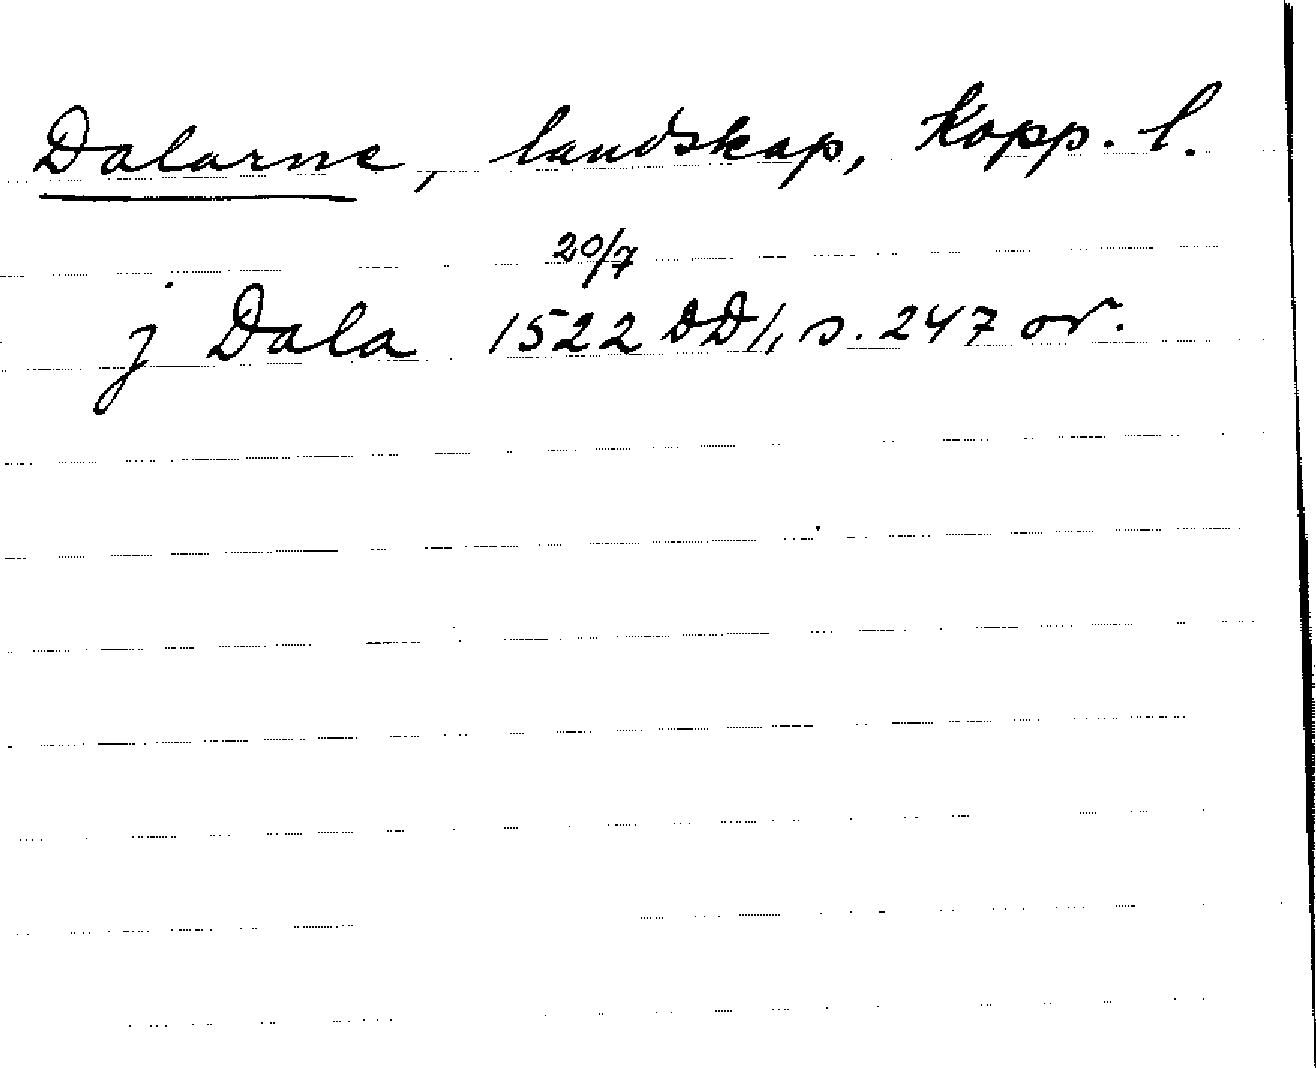 Dalarne, landskap, Kopp. l.
20/7
j Dala 1522 DD 1, s. 247 or.